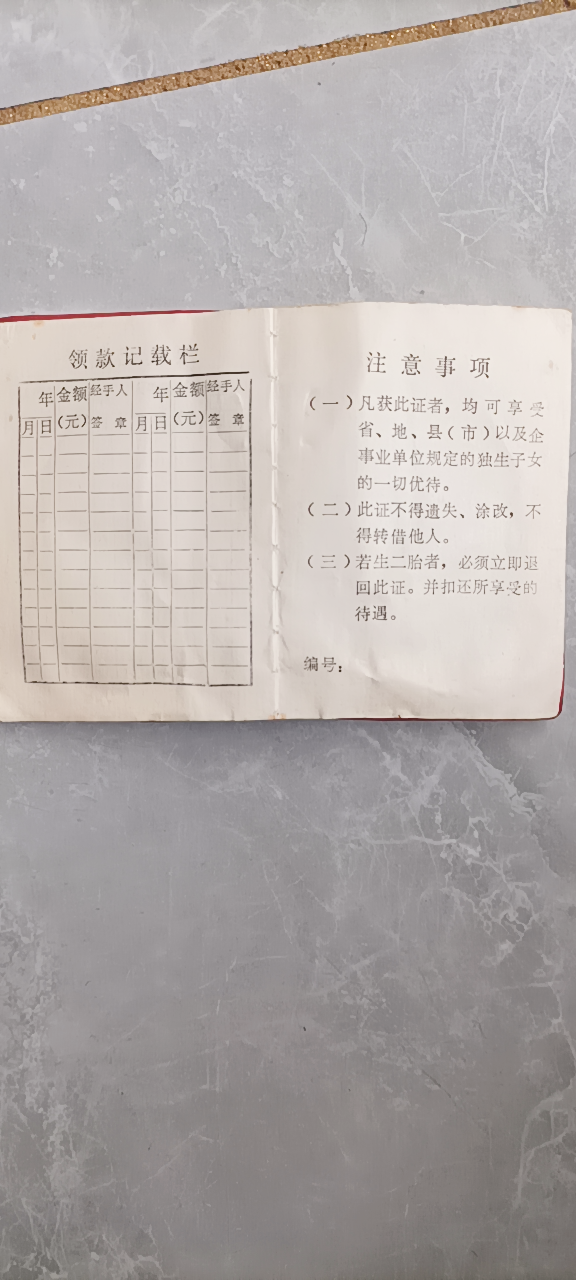 领款记载栏
年 金额 经手人 年 金额 经手人
月 日 (元) 签章 月 日 (元) 签章
注意事项
(一)凡获此证者，均可享受
省、地、县(市)以及企
事业单位规定的独生子女
的一切优待。
(二)此证不得遗失、涂改，不
得转借他人。
(三)若生二胎者，必须立即退
回此证。并扣还所享受的
待遇。
编号：